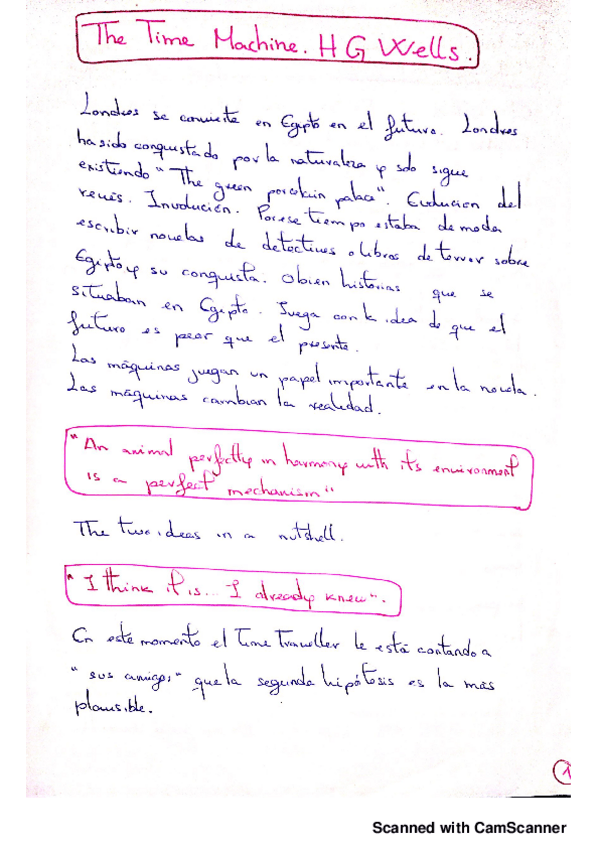 The Time Machine. H G Wells.
Londres se convierte en Egipto en el futuro. Londres
ha sido conquistado por la naturaleza y solo sigue
existiendo "The green porcelain palace". Evolución del
revés. Involución. Por ese tiempo estaba de moda
escribir novelas de detectives o libros de terror sobre
Egipto y su conquista. O bien historias que se
situaban en Egipto. Juega con la idea de que el
futuro es peor que el presente.
Las máquinas juegan un papel importante en la novela.
Las máquinas cambian la realidad.
"An animal perfectly in harmony with its environment
is a perfect mechanism"
The two ideas in a nutshell.
"I think it is... I already knew".
En este momento el Time Traveller le está contando a
"sus amigos" que la segunda hipótesis es la más
plausible.
1
Scanned with CamScanner